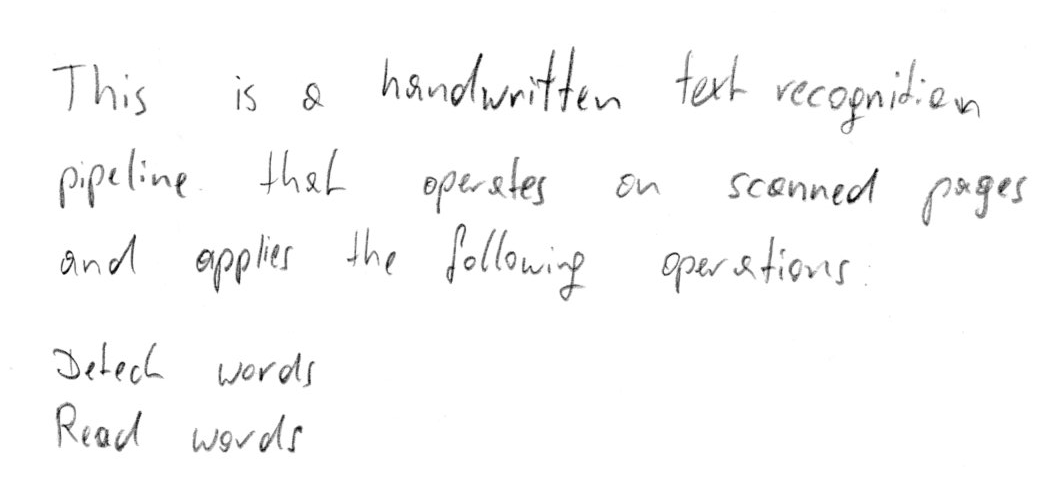 This is a handwritten text recognition
pipeline that operates on scanned pages
and applies the following operations:
Detect words
Read words